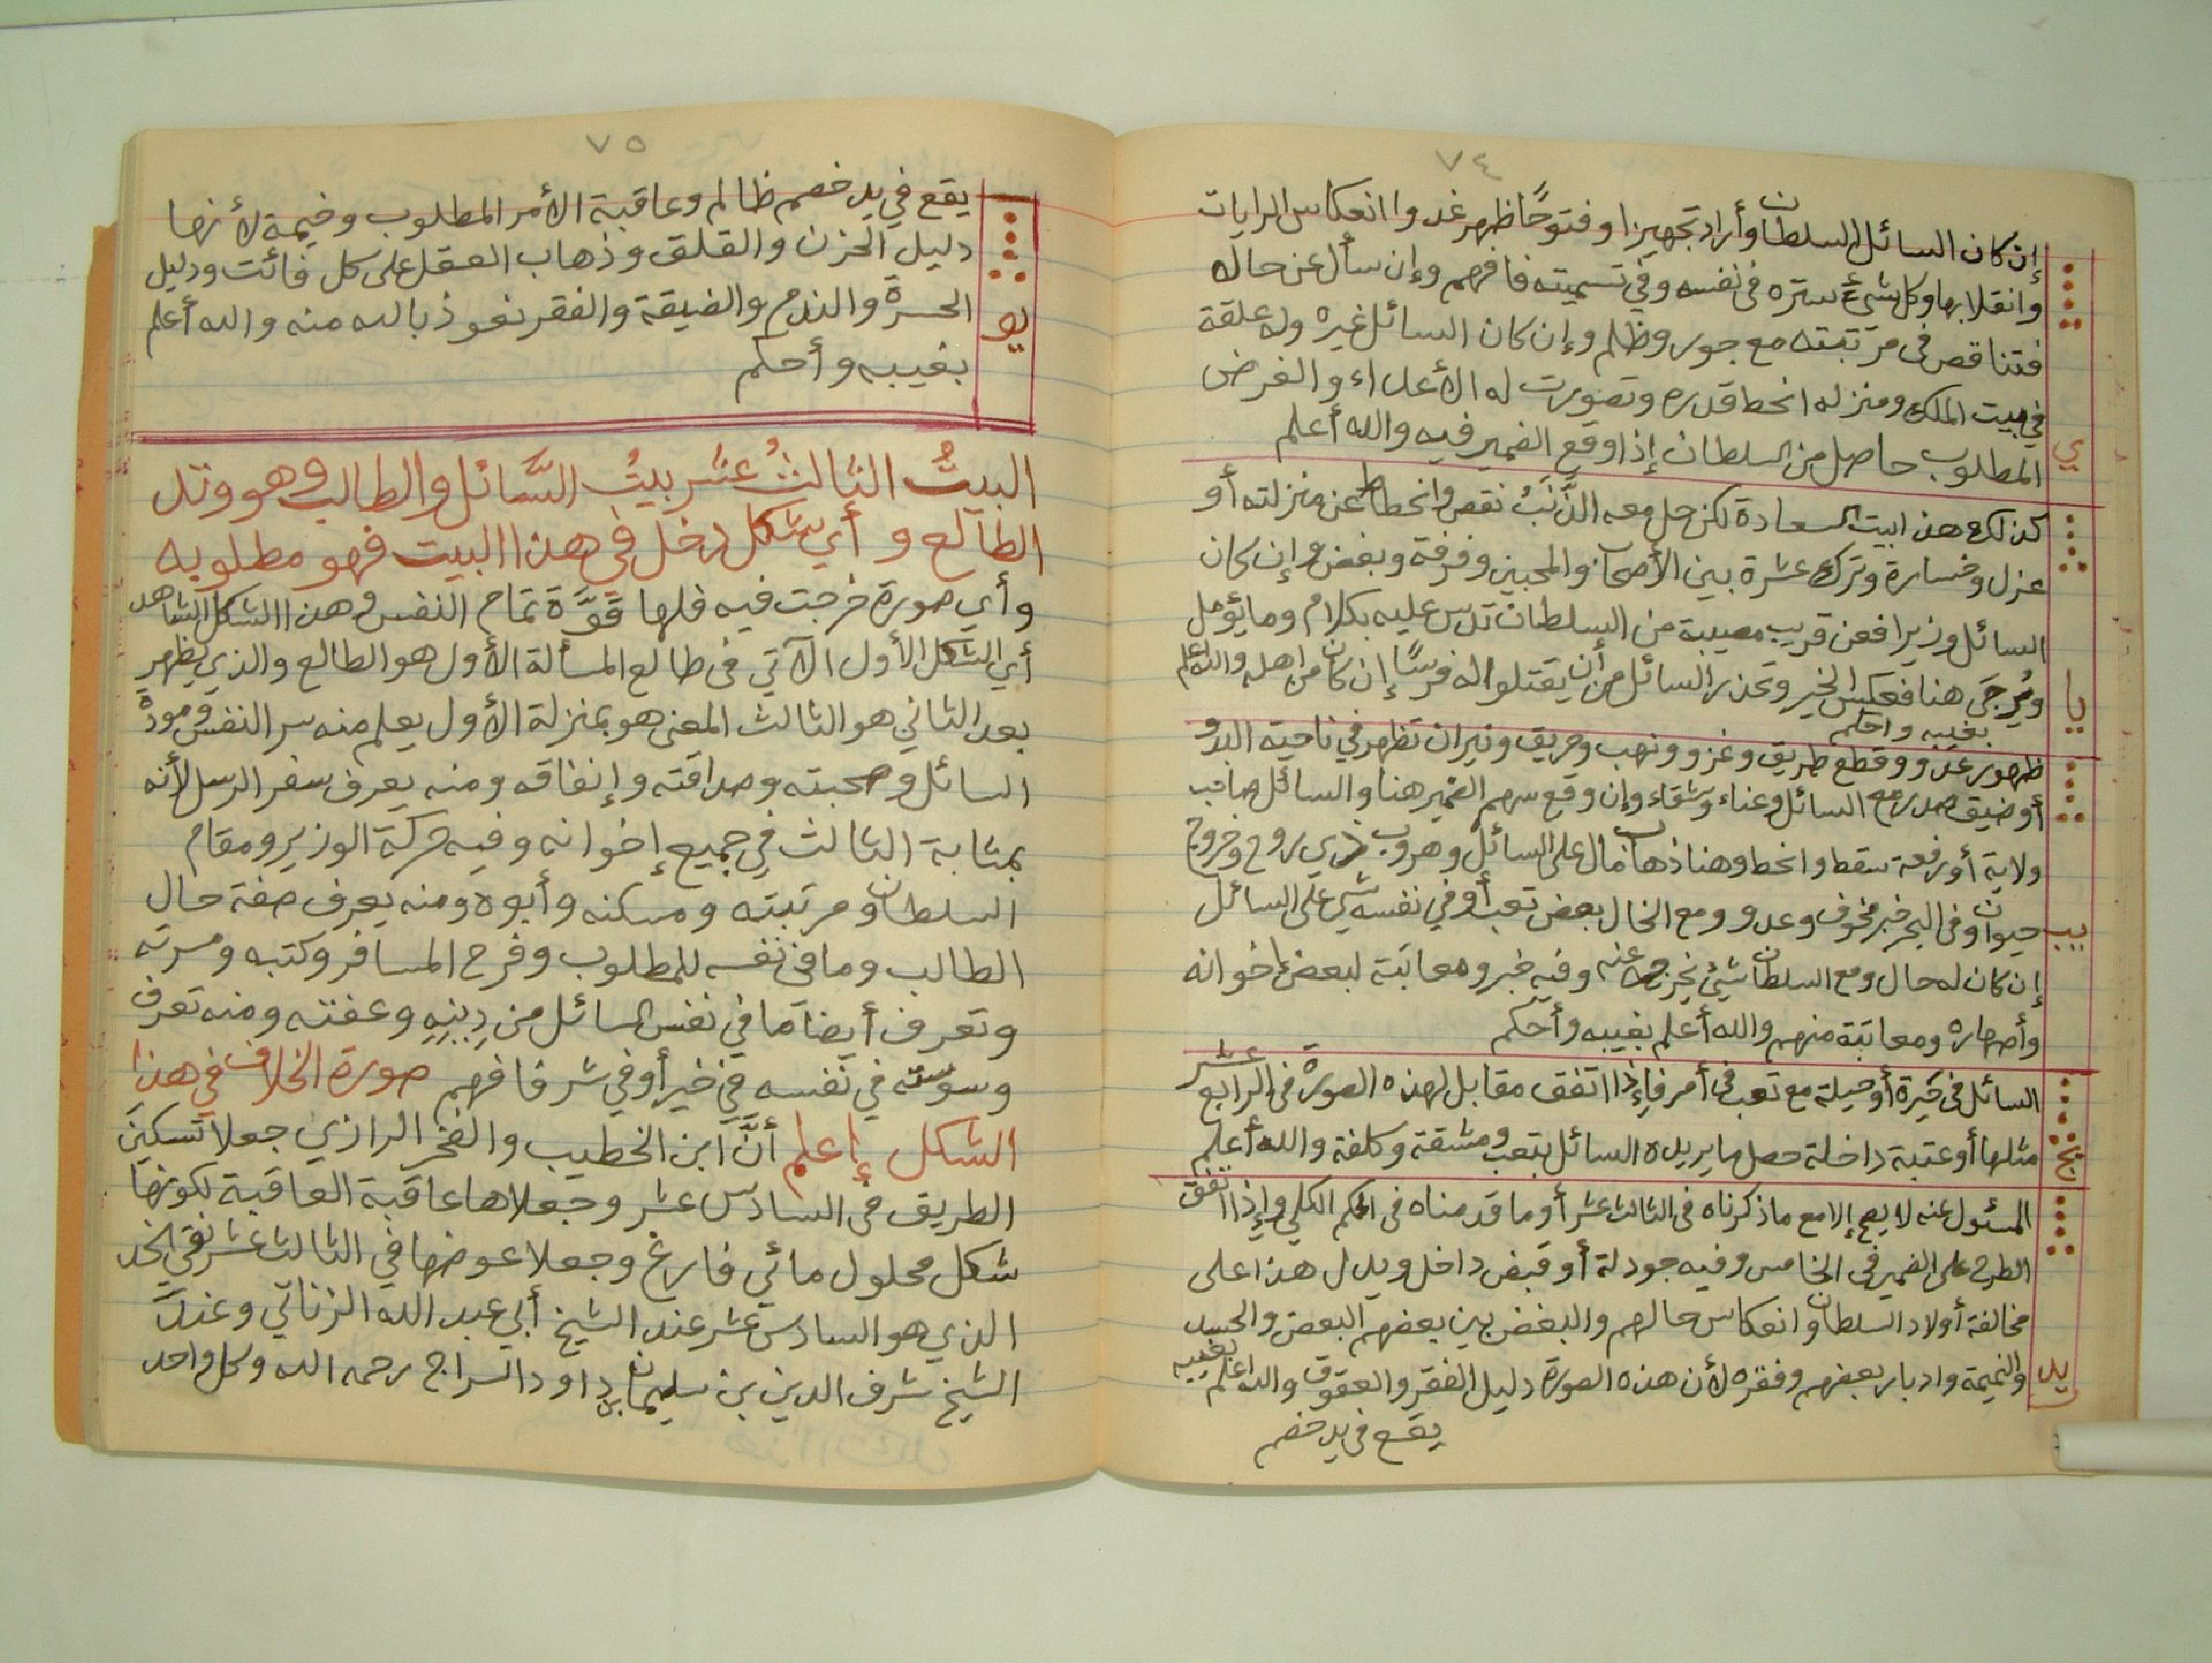 ٧٤
إن كان السائل السلطان وأراد تجهيزا وفتوحًا ظهر غدوا انعكاس الرايات
وانقلابها وكل شيء ستره في نفسه وفي تسميته فافهم وإن سأل عن حاله
فتناقص في مرتبته مع جور وظلم وإن كان السائل غيره وله علقة
في بيت الملك ومنزله انحط قدره وتصورت له الأعداء والغرض
ي
المطلوب حاصل من السلطان إذا وقع الضمير فيه والله أعلم
كذلك هذا بيت السعادة لكن حل معه الذَّنَبُ نقص وانحطاط عن منزلته أو
عزل وخسارة وترك عشرة بين الأصحاب والمحبين وفرقة وبغض وإن كان
السائل وزيرا فعن قريب مصيبة من السلطان تدس عليه بكلام وما يؤمل
يا
ويُرجَى هنا فعكس الخير وتحذر السائل من أن يقتلوا له فرسًا إن كان من أهله والله أعلم
بغيبه وأحكم
ظهور عدو وقطع طريق وغزو ونهب وحريق ونيران تظهر في ناحية البدو
أو ضيق صدر مع السائل وعناء وشقاء وإن وقع سهم الضمير هنا والسائل صاحب
ولاية أو رفعة سقط وانحط وهنا ذهاب مال على السائل وهروب ذي روح وخروج
يب
حيوان وفي البحر خبر مخوف وعدو ومع الخال بعض تعب أو في نفسه شيء على السائل
إن كان له حال ومع السلطان شيئ يخرجه عنه وفيه خير ومعاتبة لبعض إخوانه
وأصهاره ومعاتبة منهم والله أعلم بغيبه وأحكم
السائل في حَيرة أو حيلة مع تعب في أمر فإذا اتفق مقابل لهذه الصورة في الرابع عشر
يج
مثلها أو عتبة داخلة حصل ما يريده السائل بتعب ومشقة وكلفة والله أعلم
المسئول عنه لا يصح إلا مع ما ذكرناه في الثالث عشر أو ما قدمناه في الحكم الكلي وإذا اتفق
الطرح على الضمير في الخامس وفيه جودلة أو قبض داخل ويدل هذا على
مخالفة أولاد السلطان وانعكاس حالهم والبغض بين بعضهم البعض والحسد
يد
والنميمة وادبار بعضهم وفقره لأن هذه الصورة دليل الفقر والعقوق والله أعلم بغيبه
يقع في يد خصم
٧٥
يقع في يد خصم ظالم وعاقبة الأمر المطلوب وخيمة لأنها
دليل الحزن والقلق وذهاب العقل على كل فائت ودليل
الحسرة والندم والضيقة والفقر نعوذ بالله منه والله أعلم
يو
بغيبه وأحكم
البيتُ الثالثُ عشر بيتُ السَّائل والطالب وهو وتد
الطالع و أي شكل دخل في هذا البيت فهو مطلوبه
وأي صورة خرجت فيه فلها قوَّة تمام النفس وهذا الشكل الشاهد
أي الشكل الأول الآتي في طالع المسألة الأول هو الطالع والذي يظهر
بعد الثاني هو الثالث المعنى هو بمنزلة الأول يعلم منه سر النفس ومودة
السائل وصحبته وصداقته وإنفاقه ومنه يعرف سفر الرسل لأنه
بمثابة الثالث في جميع إخوانه وفيه حركة الوزير ومقام
السلطان ومرتبته ومسكنه وأبوه ومنه يعرف صفة حال
الطالب وما في نفسه للمطلوب وفرح المسافر وكتبه ومسرته
وتعرف أيضًا ما في نفس السائل من دِينِهِ وعفته ومنه تعرف
وسوسته في نفسه في خير أو في شر فافهم صورة الخلاف في هذا
الشكل إعلم أنَّ ابن الخطيب والفخر الرازي جعلا تسكينَ
الطريق في السادس عشر وجعلاها عاقبة العاقبة لكونها
شكل محلول مائي فارغ وجعلا عوضها في الثالث عشر نقي الخد
الذي هو السادس عشر عند الشيخ أبي عبد الله الزناتي وعند
الشيخ شرف الدين بن سليمان بن داود السراج رحمه الله وكل واحد